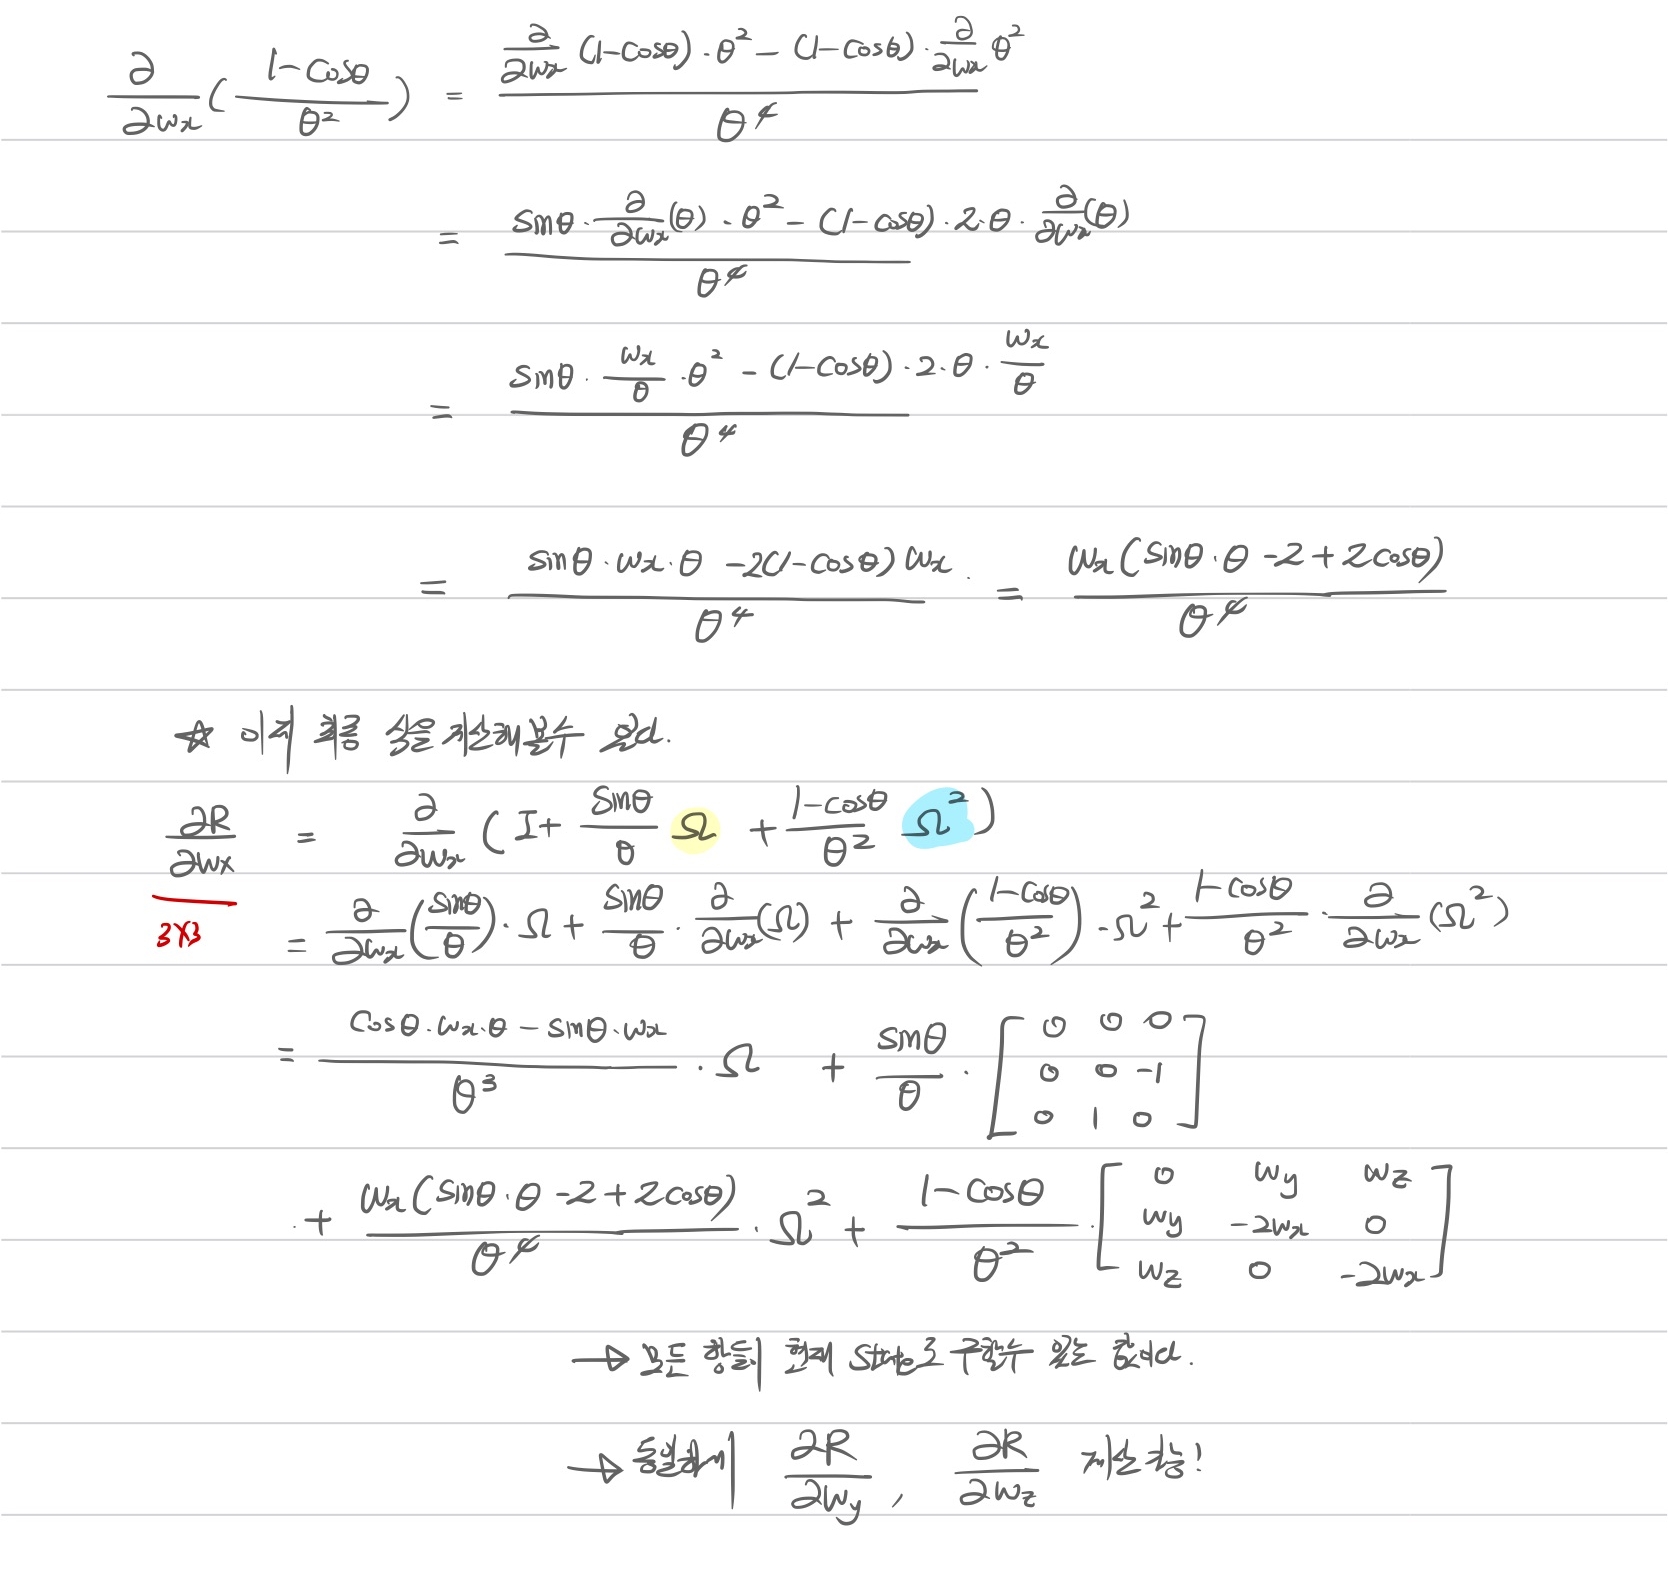 ∂/∂wx ( (1-cosθ)/θ² ) = ( ∂/∂wx (1-cosθ)·θ² - (1-cosθ)·∂/∂wx θ² ) / θ⁴
= ( sinθ·∂/∂wx(θ)·θ² - (1-cosθ)·2·θ·∂/∂wx(θ) ) / θ⁴
= ( sinθ·wx/θ·θ² - (1-cosθ)·2·θ·wx/θ ) / θ⁴
= ( sinθ·wx·θ - 2(1-cosθ)wx ) / θ⁴ = wx(sinθ·θ - 2 + 2cosθ) / θ⁴
☆ 이제 최종 식을 계산해볼수 있다.
∂R/∂wx = ∂/∂wx ( I + sinθ/θ Ω + (1-cosθ)/θ² Ω² )
3X3
= ∂/∂wx (sinθ/θ)·Ω + sinθ/θ·∂/∂wx(Ω) + ∂/∂wx ((1-cosθ)/θ²)·Ω² + (1-cosθ)/θ²·∂/∂wx(Ω²)
= (cosθ·wx·θ - sinθ·wx)/θ³ · Ω + sinθ/θ · [ 0 0 0
0 0 -1
0 1 0 ]
+ wx(sinθ·θ - 2 + 2cosθ)/θ⁴ · Ω² + (1-cosθ)/θ² · [ 0 wy wz
wy -2wx 0
wz 0 -2wx ]
→ 모든 항들이 현재 state로 구할수 있는 값이다.
→ 동일하게 ∂R/∂wy, ∂R/∂wz 계산 가능!